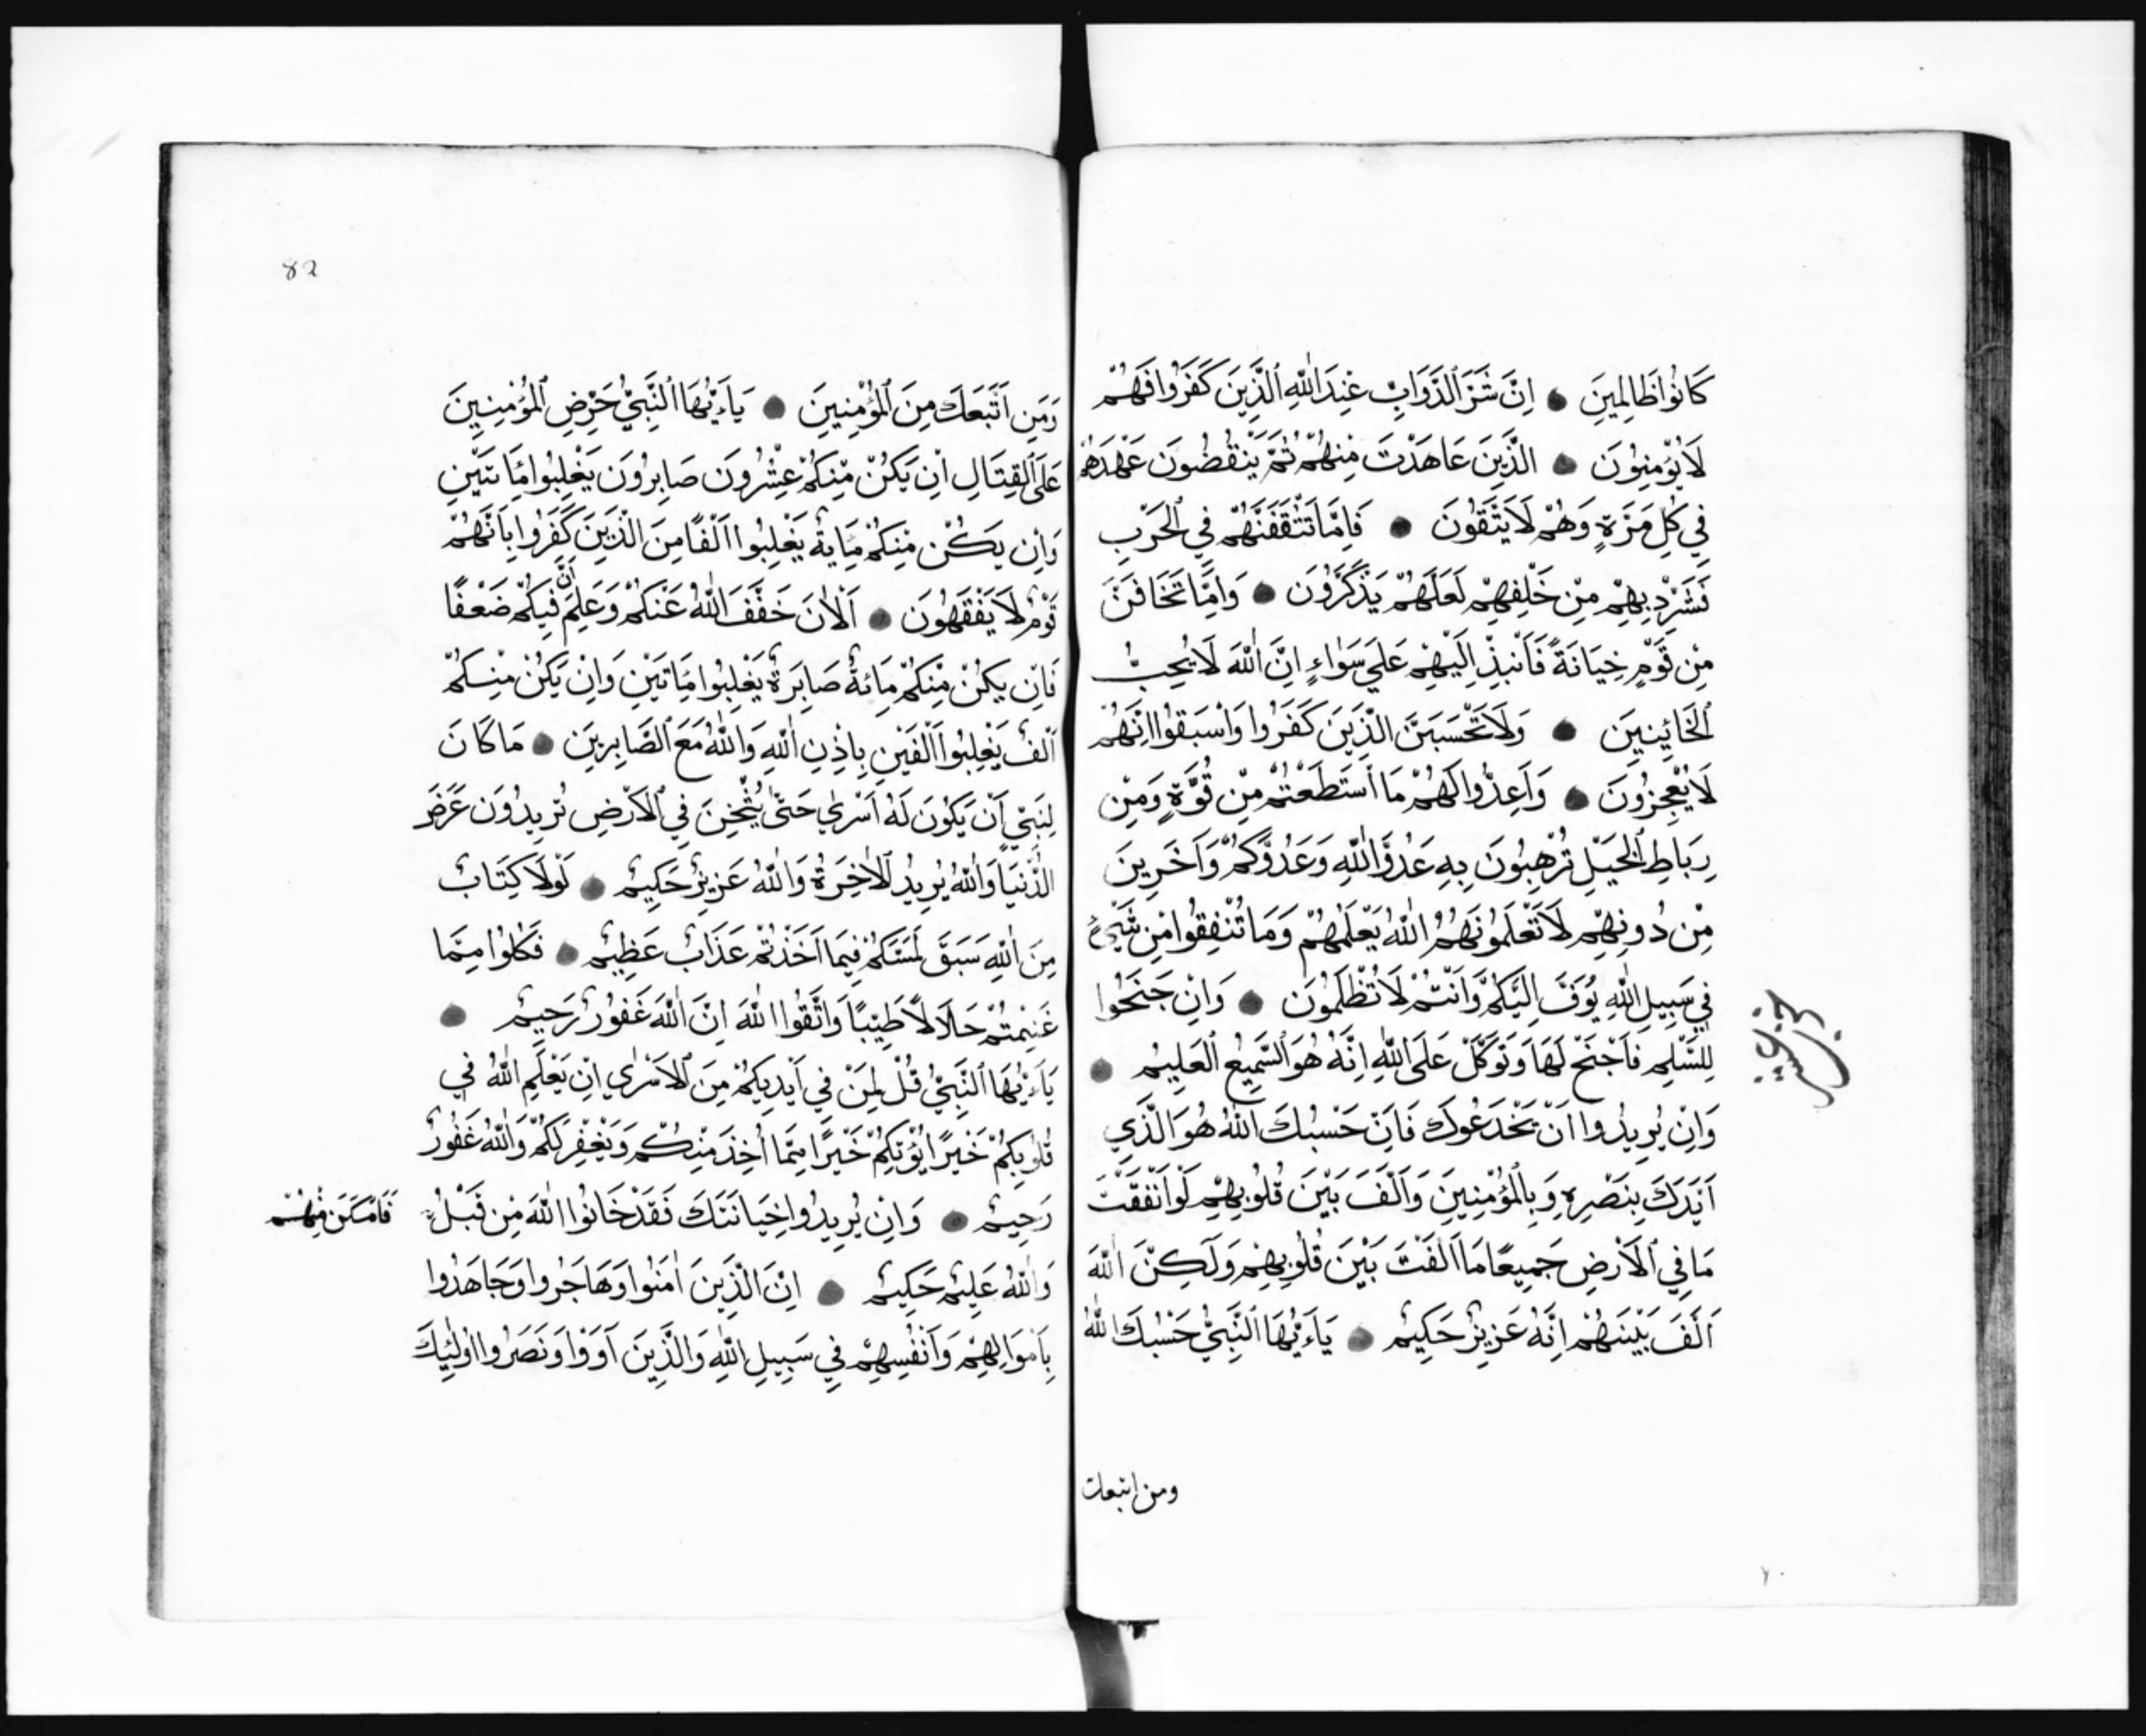 كَانُوا ظَالِمِينَ ● اِنَّ شَرَّ الدَّوَابِّ عِنْدَ اللّٰهِ الَّذِينَ كَفَرُوا فَهُمْ
لَا يُؤْمِنُونَ ● الَّذِينَ عَاهَدْتَ مِنْهُمْ ثُمَّ يَنْقُضُونَ عَهْدَهُمْ
فِي كُلِّ مَرَّةٍ وَهُمْ لَا يَتَّقُونَ ● فَاِمَّا تَثْقَفَنَّهُمْ فِي الْحَرْبِ
فَشَرِّدْ بِهِمْ مِنْ خَلْفَهُمْ لَعَلَّهُمْ يَذَّكَّرُونَ ● وَاِمَّا تَخَافَنَّ
مِنْ قَوْمٍ خِيَانَةً فَانْبِذْ اِلَيْهِمْ عَلَى سَوَاءٍ اِنَّ اللّٰهَ لَا يُحِبُّ
الْخَائِنِينَ ● وَلَا تَحْسَبَنَّ الَّذِينَ كَفَرُوا وَاسَبَقُوا اِنَّهُمْ
لَا يُعْجِزُونَ ● وَاَعِدُّوا لَهُمْ مَا اسْتَطَعْتُمْ مِنْ قُوَّةٍ وَمِنْ
رِبَاطِ الْخَيْلِ تُرْهِبُونَ بِهِ عَدُوَّ اللّٰهِ وَعَدُوَّكُمْ وَآخَرِينَ
مِنْ دُونِهِمْ لَا تَعْلَمُونَهُمُ اللّٰهُ يَعْلَمُهُمْ وَمَا تُنْفِقُوا مِنْ شَيْءٍ
فِي سَبِيلِ اللّٰهِ يُوَفَّ اِلَيْكُمْ وَاَنْتُمْ لَا تُظْلَمُونَ ● وَاِنْ جَنَحُوا
لِلسَّلْمِ فَاجْنَحْ لَهَا وَتَوَكَّلْ عَلَى اللّٰهِ اِنَّهُ هُوَ السَّمِيعُ الْعَلِيمُ ●
وَاِنْ يُرِيدُوا اَنْ يَخْدَعُوكَ فَاِنَّ حَسْبُكَ اللّٰهُ هُوَ الَّذِي
اَيَّدَكَ بِنَصْرِهِ وَبِالْمُؤْمِنِينَ وَاَلَّفَ بَيْنَ قُلُوبِهِمْ لَوْ اَنْفَقْتَ
مَا فِي الْاَرْضِ جَمِيعًا مَا اَلَّفْتَ بَيْنَ قُلُوبِهِمْ وَلَكِنَّ اللّٰهَ
اَلَّفَ بَيْنَهُمْ اِنَّهُ عَزِيزٌ حَكِيمٌ ● يَاءَيُّهَا النَّبِيُّ حَسْبُكَ اللّٰهُ
ومن اتبعك
82
وَمَنِ اتَّبَعَكَ مِنَ الْمُؤْمِنِينَ ● يَاءَيُّهَا النَّبِيُّ حَرِّضِ الْمُؤْمِنِينَ
عَلَى الْقِتَالِ اِنْ يَكُنْ مِنْكُمْ عِشْرُونَ صَابِرُونَ يَغْلِبُوا مِاتَيْنِ
وَاِنْ يَكُنْ مِنْكُمْ مِايَةٌ يَغْلِبُوا اَلْفًا مِنَ الَّذِينَ كَفَرُوا بِاَنَّهُمْ
قَوْمٌ لَا يَفْقَهُونَ ● اَلْاٰنَ خَفَّفَ اللّٰهُ عَنْكُمْ وَعَلِمَ اَنَّ فِيكُمْ ضَعْفًا
فَاِنْ يَكُنْ مِنْكُمْ مِائَةٌ صَابِرَةٌ يَغْلِبُوا مِاتَيْنِ وَاِنْ يَكُنْ مِنْكُمْ
اَلْفٌ يَغْلِبُوا اَلْفَيْنِ بِاِذْنِ اللّٰهِ وَاللّٰهُ مَعَ الصَّابِرِينَ ● مَا كَانَ
لِنَبِيٍّ اَنْ يَكُونَ لَهُ اَسْرٰي حَتّٰي يُثْخِنَ فِي الْاَرْضِ تُرِيدُونَ عَرَضَ
الدُّنْيَا وَاللّٰهُ يُرِيدُ الْاٰخِرَةَ وَاللّٰهُ عَزِيزٌ حَكِيمٌ ● لَوْلَا كِتَابٌ
مِنَ اللّٰهِ سَبَقَ لَمَسَّكُمْ فِيمَا اَخَذْتُمْ عَذَابٌ عَظِيمٌ ● فَكُلُوا مِمَّا
غَنِمْتُمْ حَلَالًا طَيِّبًا وَاتَّقُوا اللّٰهَ اِنَّ اللّٰهَ غَفُورٌ رَحِيمٌ ●
يَاءَيُّهَا النَّبِيُّ قُلْ لِمَنْ فِي اَيْدِيكُمْ مِنَ الْاَسْرٰي اِنْ يَعْلَمِ اللّٰهُ فِي
قُلُوبِكُمْ خَيْرًا يُؤْتِكُمْ خَيْرًا مِمَّا اُخِذَ مِنْكُمْ وَيَغْفِرْ لَكُمْ وَاللّٰهُ غَفُورٌ
رَحِيمٌ ● وَاِنْ يُرِيدُوا خِيَانَتَكَ فَقَدْ خَانُوا اللّٰهَ مِنْ قَبْلُ فَاَمْكَنَ مِنْهُمْ
وَاللّٰهُ عَلِيمٌ حَكِيمٌ ● اِنَّ الَّذِينَ اٰمَنُوا وَهَاجَرُوا وَجَاهَدُوا
بِاَمْوَالِهِمْ وَاَنْفُسِهِمْ فِي سَبِيلِ اللّٰهِ وَالَّذِينَ آوَوْا وَنَصَرُوا اُولٰئِكَ